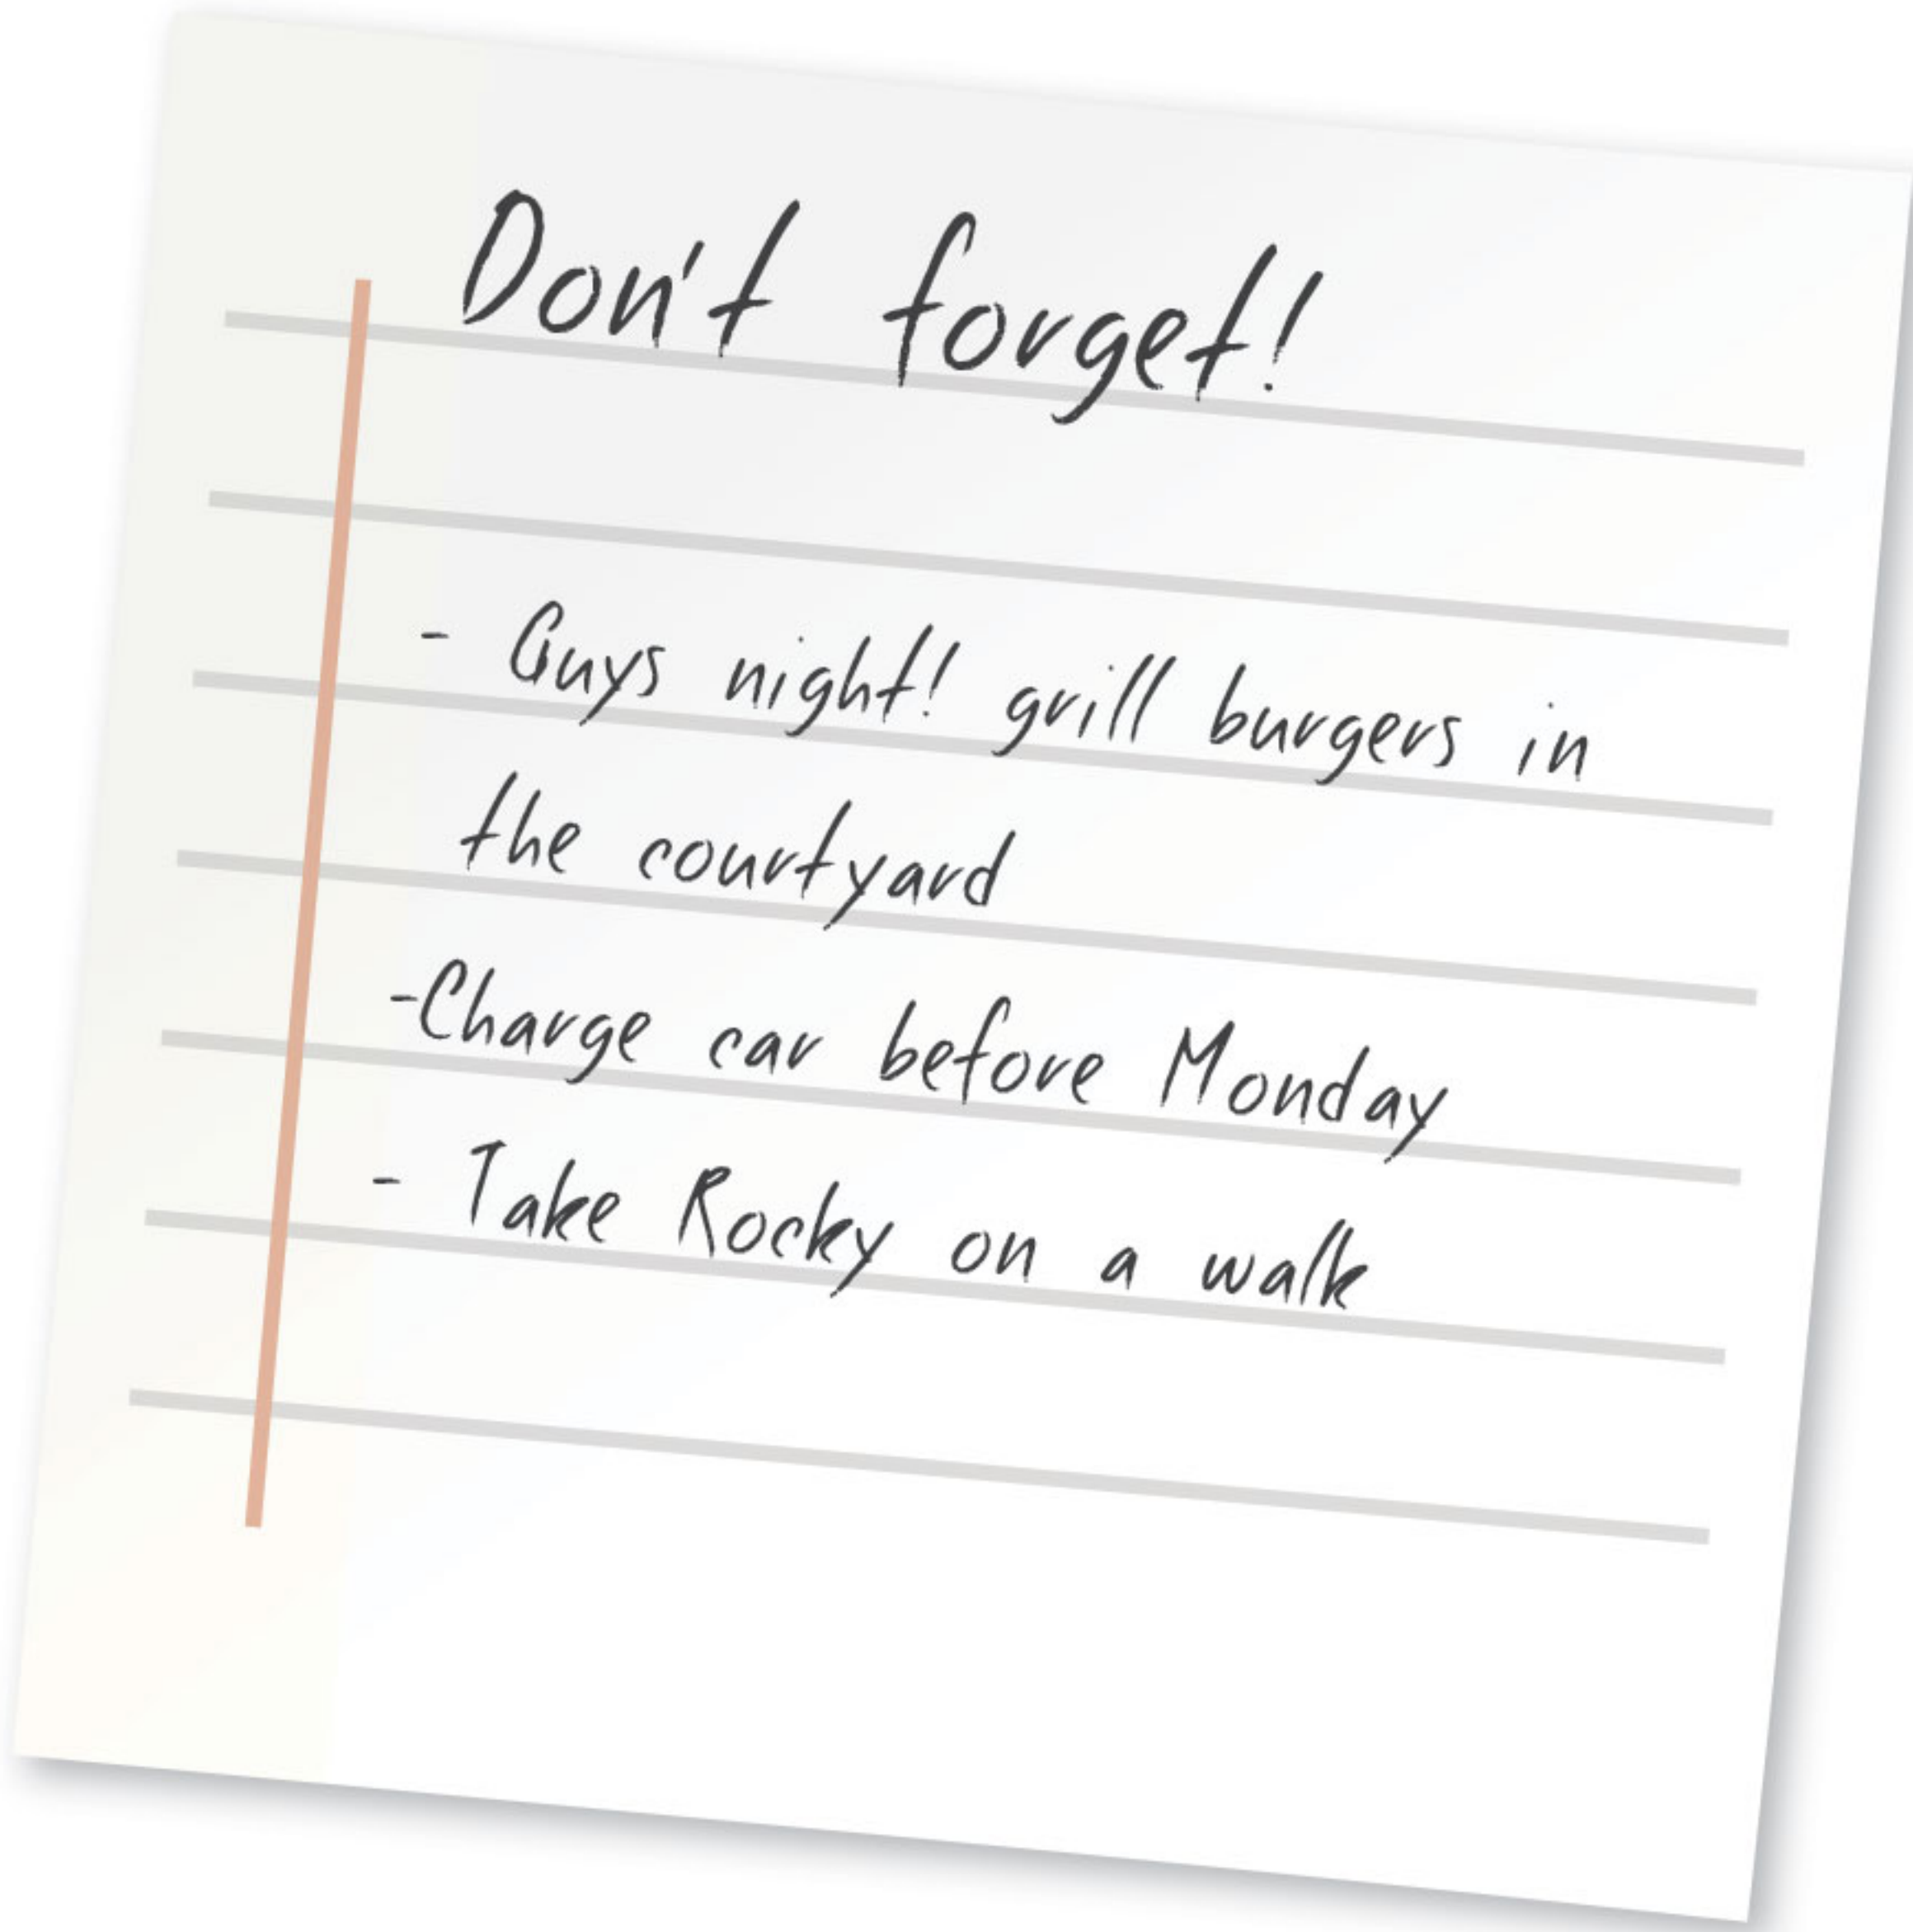 Don't forget!
- Guys night! grill burgers in
the courtyard
-Charge car before Monday
- Take Rocky on a walk